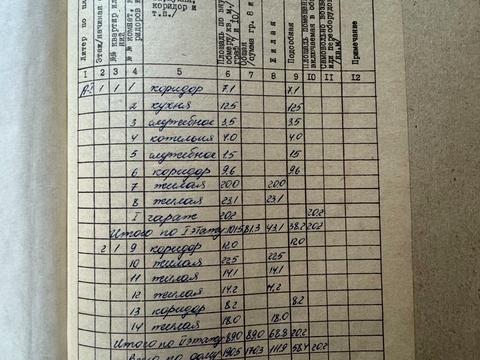 коридор и
т.п./
Литер по пл
Этаж/начиная
Площадь по нару
Общая
/сумма гр. 8 и
Жилая
Подсобная
Площадь помещени
включаемая в общ
Самовольно возве
или переоборудов
/кв.м/
Примечание
1 2 3 4 5 6 7 8 9 10 11 12
1 1 1 коридор 7.1 7.1
2 кухня 12.5 12.5
3 служебное 3.5 3.5
4 котельня 4.0 4.0
5 служебное 1.5 1.5
6 коридор 9.6 9.6
7 жилая 20.0 20.0
8 жилая 23.1 23.1
I гараж 20.2 20.2
Итого по I этажу 101.5 81.3 43.1 38.2 20.2
2 1 9 коридор 12.0 12.0
10 жилая 22.5 22.5
11 жилая 14.1 14.1
12 жилая 14.2 14.2
13 коридор 8.2 8.2
14 жилая 18.0 18.0
Итого по II этажу 89.0 89.0 68.8 20.2
Всего по дому 190.5 170.3 111.9 58.4 20.2